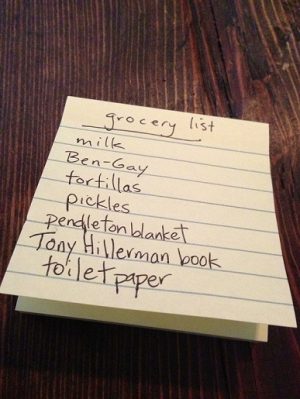 grocery list
milk
Ben-Gay
tortillas
pickles
pendleton blanket
Tony Hillerman book
toilet paper